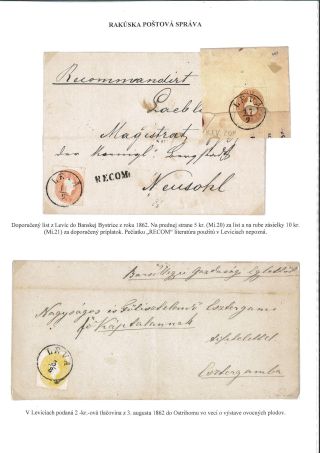 RAKÚSKA POŠTOVÁ SPRÁVA
Recommandirt
Loebl.
Magistrat
der königl. Bergstadt
Neusohl
LEVA
RECOM:
LEVA
Doporučený list z Levíc do Banskej Bystrice z roku 1862. Na prednej strane 5 kr. (Mi.20) za list a na rube zásielky 10 kr.
(Mi.21) za doporučený príplatok. Pečiatku „RECOM" literatúra použitú v Leviciach nepozná.
Nagyságos és Főtisztelendő Esztergami
fő Káptalannak
Esztergamba
LEVA
V Leviciach podaná 2 -kr.-ová tlačovina z 3. augusta 1862 do Ostrihomu vo veci o výstave ovocných plodov.